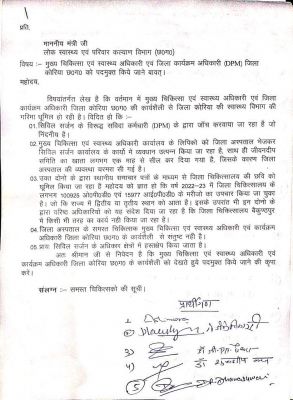 प्रति,
माननीय मंत्री जी
लोक स्वास्थ्य एवं परिवार कल्याण विभाग (छ0ग0)
विषय :- मुख्य चिकित्सा एवं स्वास्थ्य अधिकारी एवं जिला कार्यक्रम अधिकारी (DPM) जिला
कोरिया छ0ग0 को पदमुक्त किये जाने बावत्।
महोदय,
विषयांतर्गत लेख है कि वर्तमान में मुख्य चिकित्सा एवं स्वास्थ्य अधिकारी एवं जिला
कार्यक्रम अधिकारी जिला कोरिया छ0ग0 की कार्यशैली से जिला कोरिया की स्वास्थ्य विभाग की
गरिमा धूमिल हो रही है। विदित हो कि :-
01. सिविल सर्जन के विरूद्ध संविदा कर्मचारी (DPM) के द्वारा जाँच करवाया जा रहा है जो
निंदनीय है।
02. मुख्य चिकित्सा एवं स्वास्थ्य अधिकारी कार्यालय के लिपिको को जिला अस्पताल भेजकर
सिविल सर्जन कार्यालय के कार्यो में व्यवधान उत्पन्न किया जा रहा है, साथ ही जीवनदीप
समिति का खाता लगभग एक माह से सील कर दिया गया है, जिसके कारण जिला
अस्पताल की व्यवस्था चरमरा सी गई है।
03. उक्त दोनो के द्वारा स्थानीय समाचार पत्रों के माध्यम से जिला चिकित्सालय की छवि को
धूमिल किया जा रहा है महोदय को ज्ञात हो कि वर्ष 2022-23 में जिला चिकित्सालय के
लगभग ओ0पी0डी0 एवं 15977 आई0पी0डी0 के मरीजो का उपचार किया जा चुका
है। जो कि राज्य में द्वितीय या तृतीय स्थान को आता है। इसके उपरांत भी इन दोनो के
द्वारा वरिष्ठ अधिकारियों को यह संदेश दिया जा रहा है कि जिला चिकित्सालय बैकुण्ठपुर
में किसी भी तरह का कार्य नही किया जा रहा है।
04. जिला अस्पताल के समस्त चिकित्सक मुख्य चिकित्सा एवं स्वास्थ्य अधिकारी एवं कार्यक्रम
अधिकारी जिला कोरिया छ0ग0 के कार्यशैली से सतुष्ट नही है।
05. प्रायः सिविल सर्जन के अधिकार क्षेत्रों में हस्तक्षेप किया जाता है।
अतः श्रीमान जी से निवेदन है कि मुख्य चिकित्सा एवं स्वास्थ्य अधिकारी एवं
कार्यक्रम अधिकारी जिला कोरिया छ0ग0 के कार्यशैली को देखते हुये पदमुक्त किये जाने की कृपा
करे।
संलग्न :- समस्त चिकित्सको की सूची।
प्रार्थीगण
2.
3)
4)
5